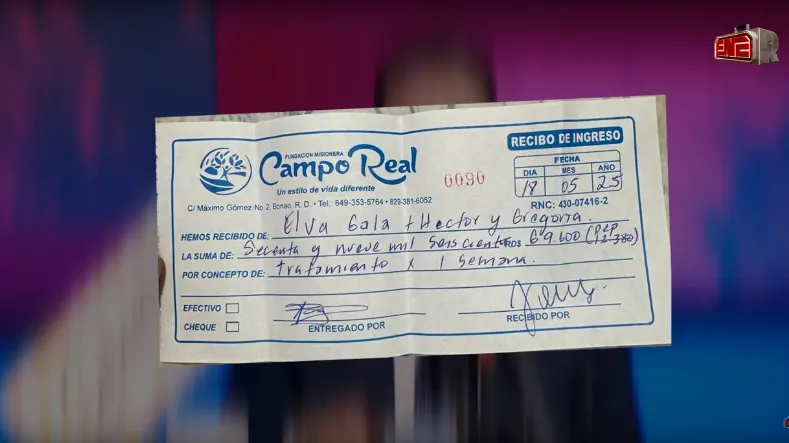 FUNDACION MISIONERA
Campo Real
Un estilo de vida diferente
C/ Máximo Gómez No. 2, Bonao, R. D. • Tel.: 849-353-5764 • 829-381-6052
0090
RECIBO DE INGRESO
FECHA
DIA MES AÑO
18 05 25
RNC: 430-07416-2
HEMOS RECIBIDO DE: Elva Gala + Hector y Gregoria.
LA SUMA DE: Secenta y nueve mil Seis cientos RD$ 69.600 (
POR CONCEPTO DE: Tratamiento x 1 Semana.
EFECTIVO
CHEQUE
ENTREGADO POR
RECIBIDO POR